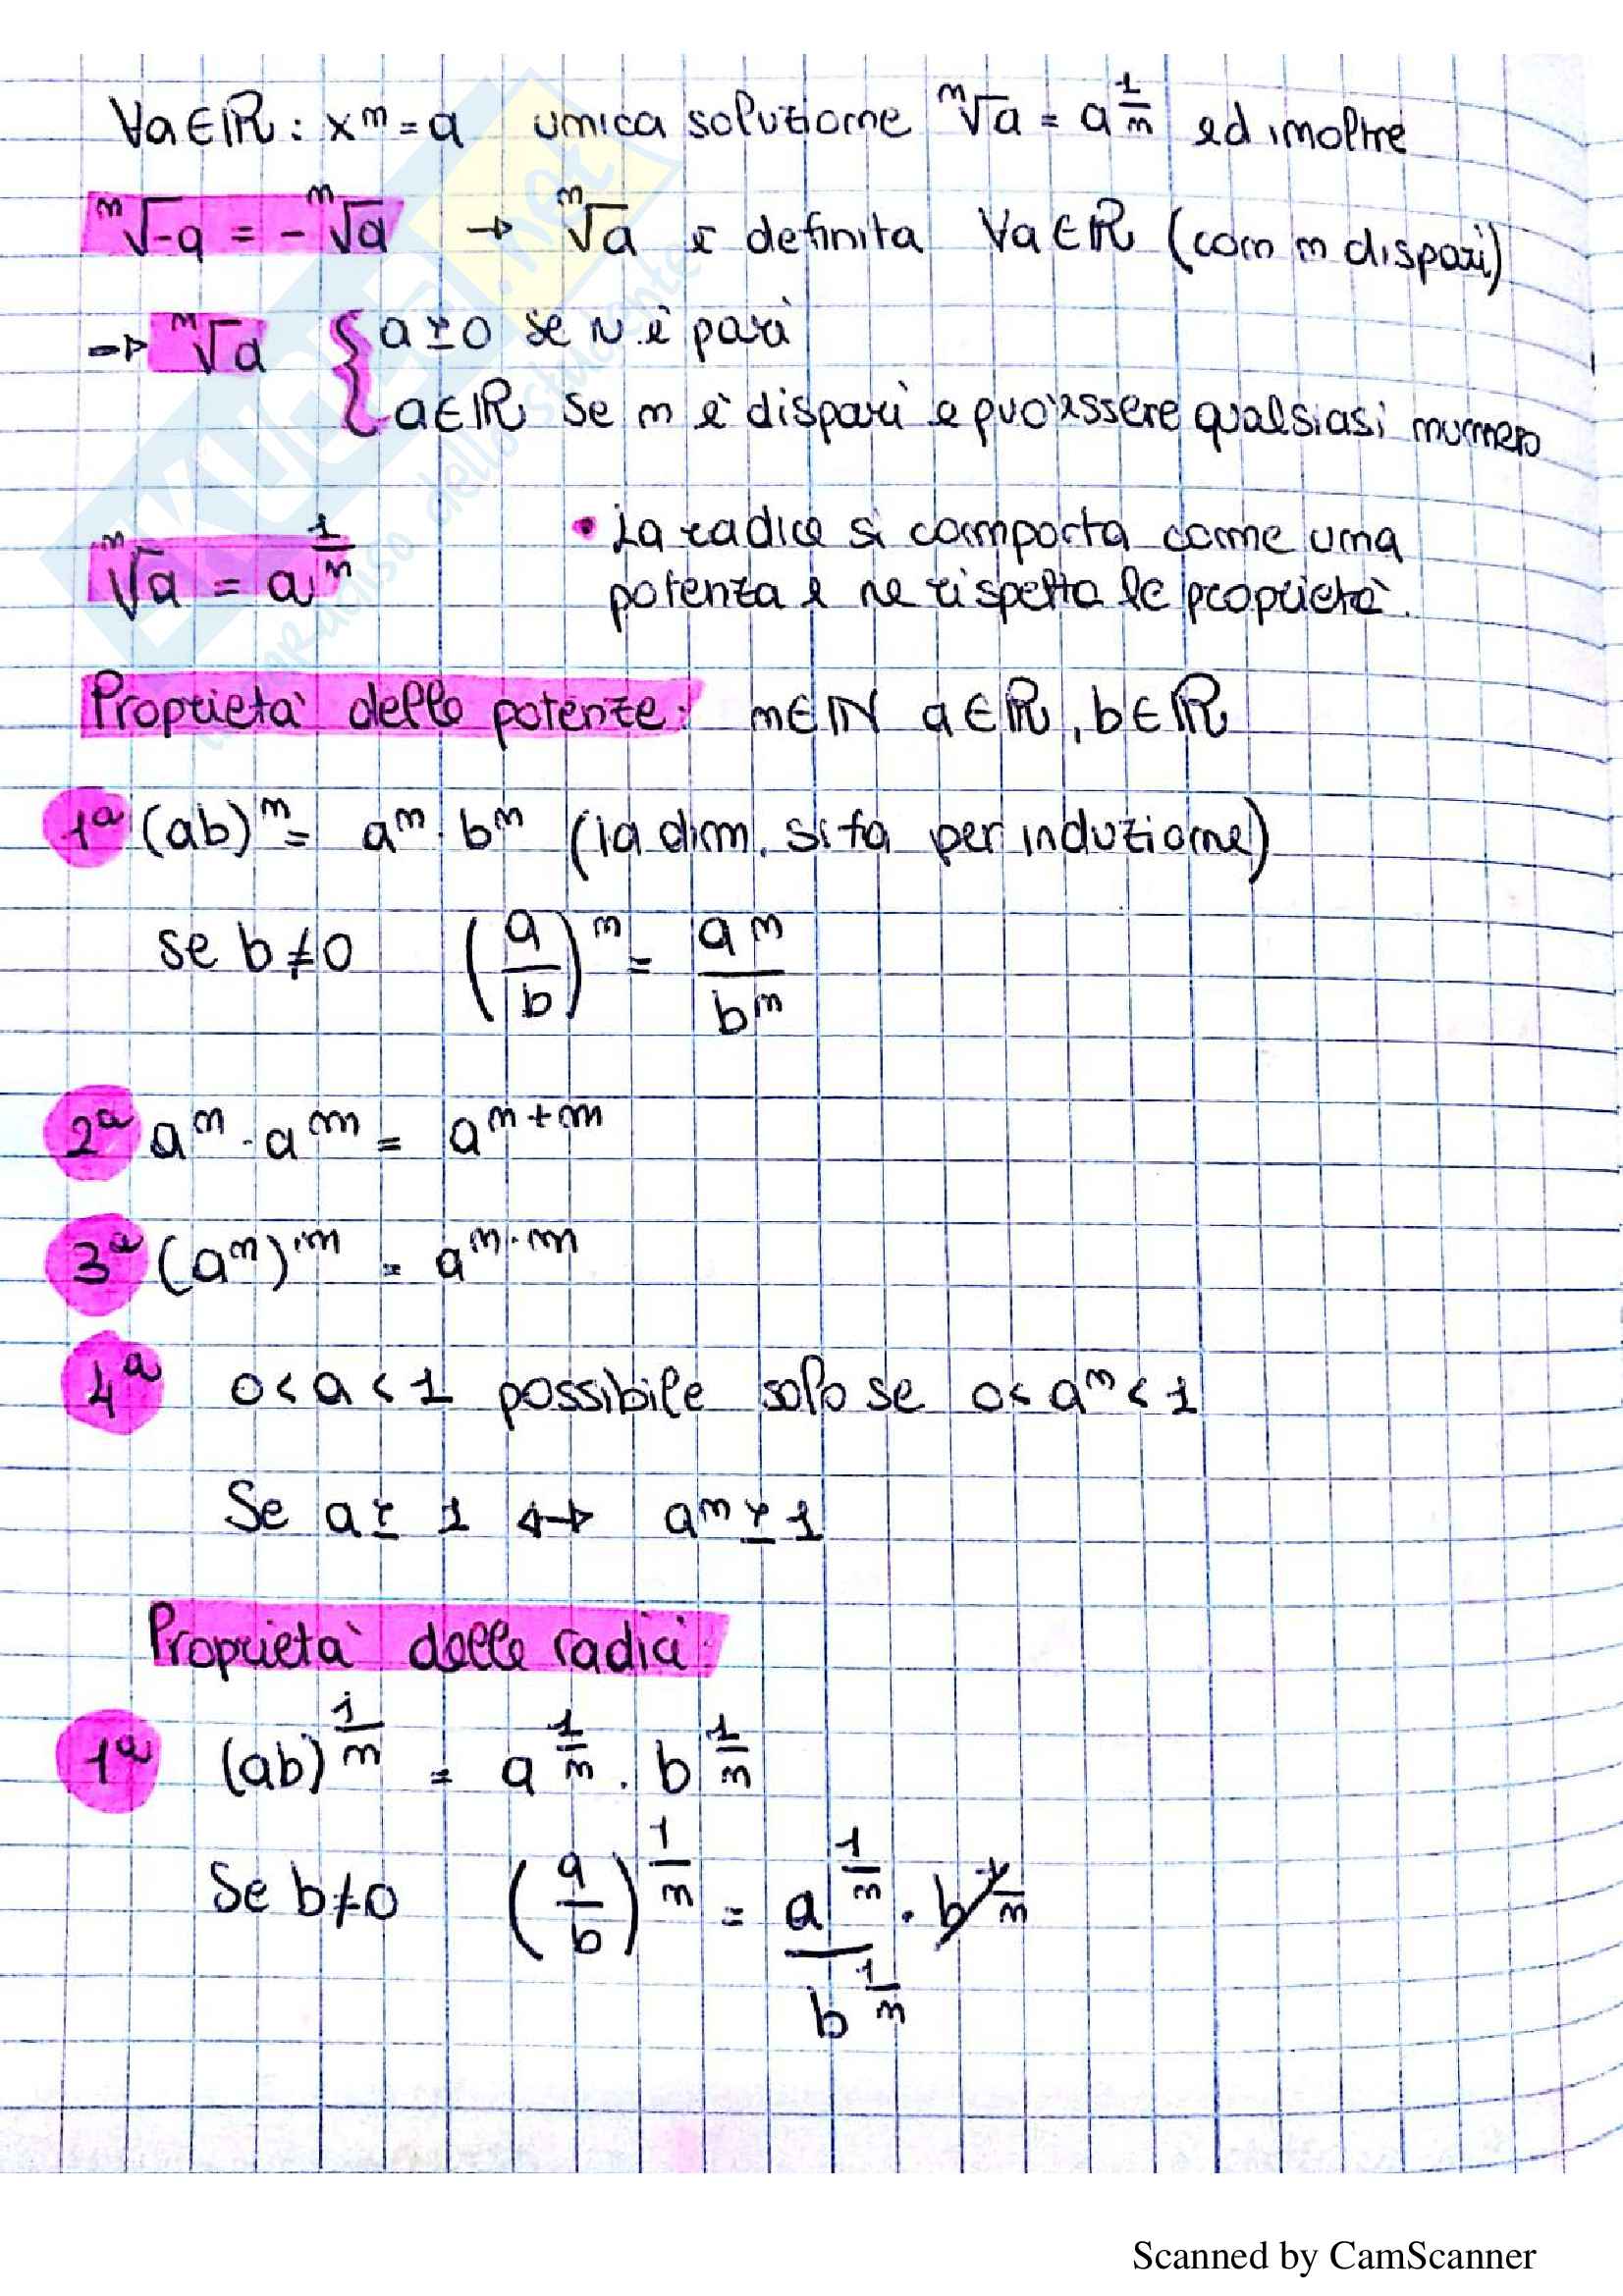 ∀a∈ℝ: xⁿ = a unica soluzione ⁿ√a = a^(1/n) ed inoltre
ⁿ√-a = - ⁿ√a → ⁿ√a è definita ∀a∈ℝ (con n dispari)
→ ⁿ√a { a ≥ 0 se N è pari
a∈ℝ se n è dispari e può essere qualsiasi numero
ⁿ√a = a^(1/n)
• La radice si comporta come una
potenza e ne rispetta le proprietà.
Proprietà delle potenze: n∈ℕ a∈ℝ, b∈ℝ
1ª (ab)ⁿ = aⁿ · bⁿ (la dim. si fa per induzione)
se b≠0 (a/b)ⁿ = aⁿ/bⁿ
2ª aⁿ · aᵐ = aⁿ⁺ᵐ
3ª (aⁿ)ᵐ = a^(n·m)
4ª 0<a<1 possibile solo se 0<aⁿ<1
Se a ≥ 1 ↔ aⁿ ≥ 1
Proprietà delle radici:
1ª (ab)^(1/n) = a^(1/n) · b^(1/n)
Se b≠0 (a/b)^(1/n) = a^(1/n)/b^(1/n) · b^(1/n)
SKUOLA.net
il paradiso dello studente
Scanned by CamScanner